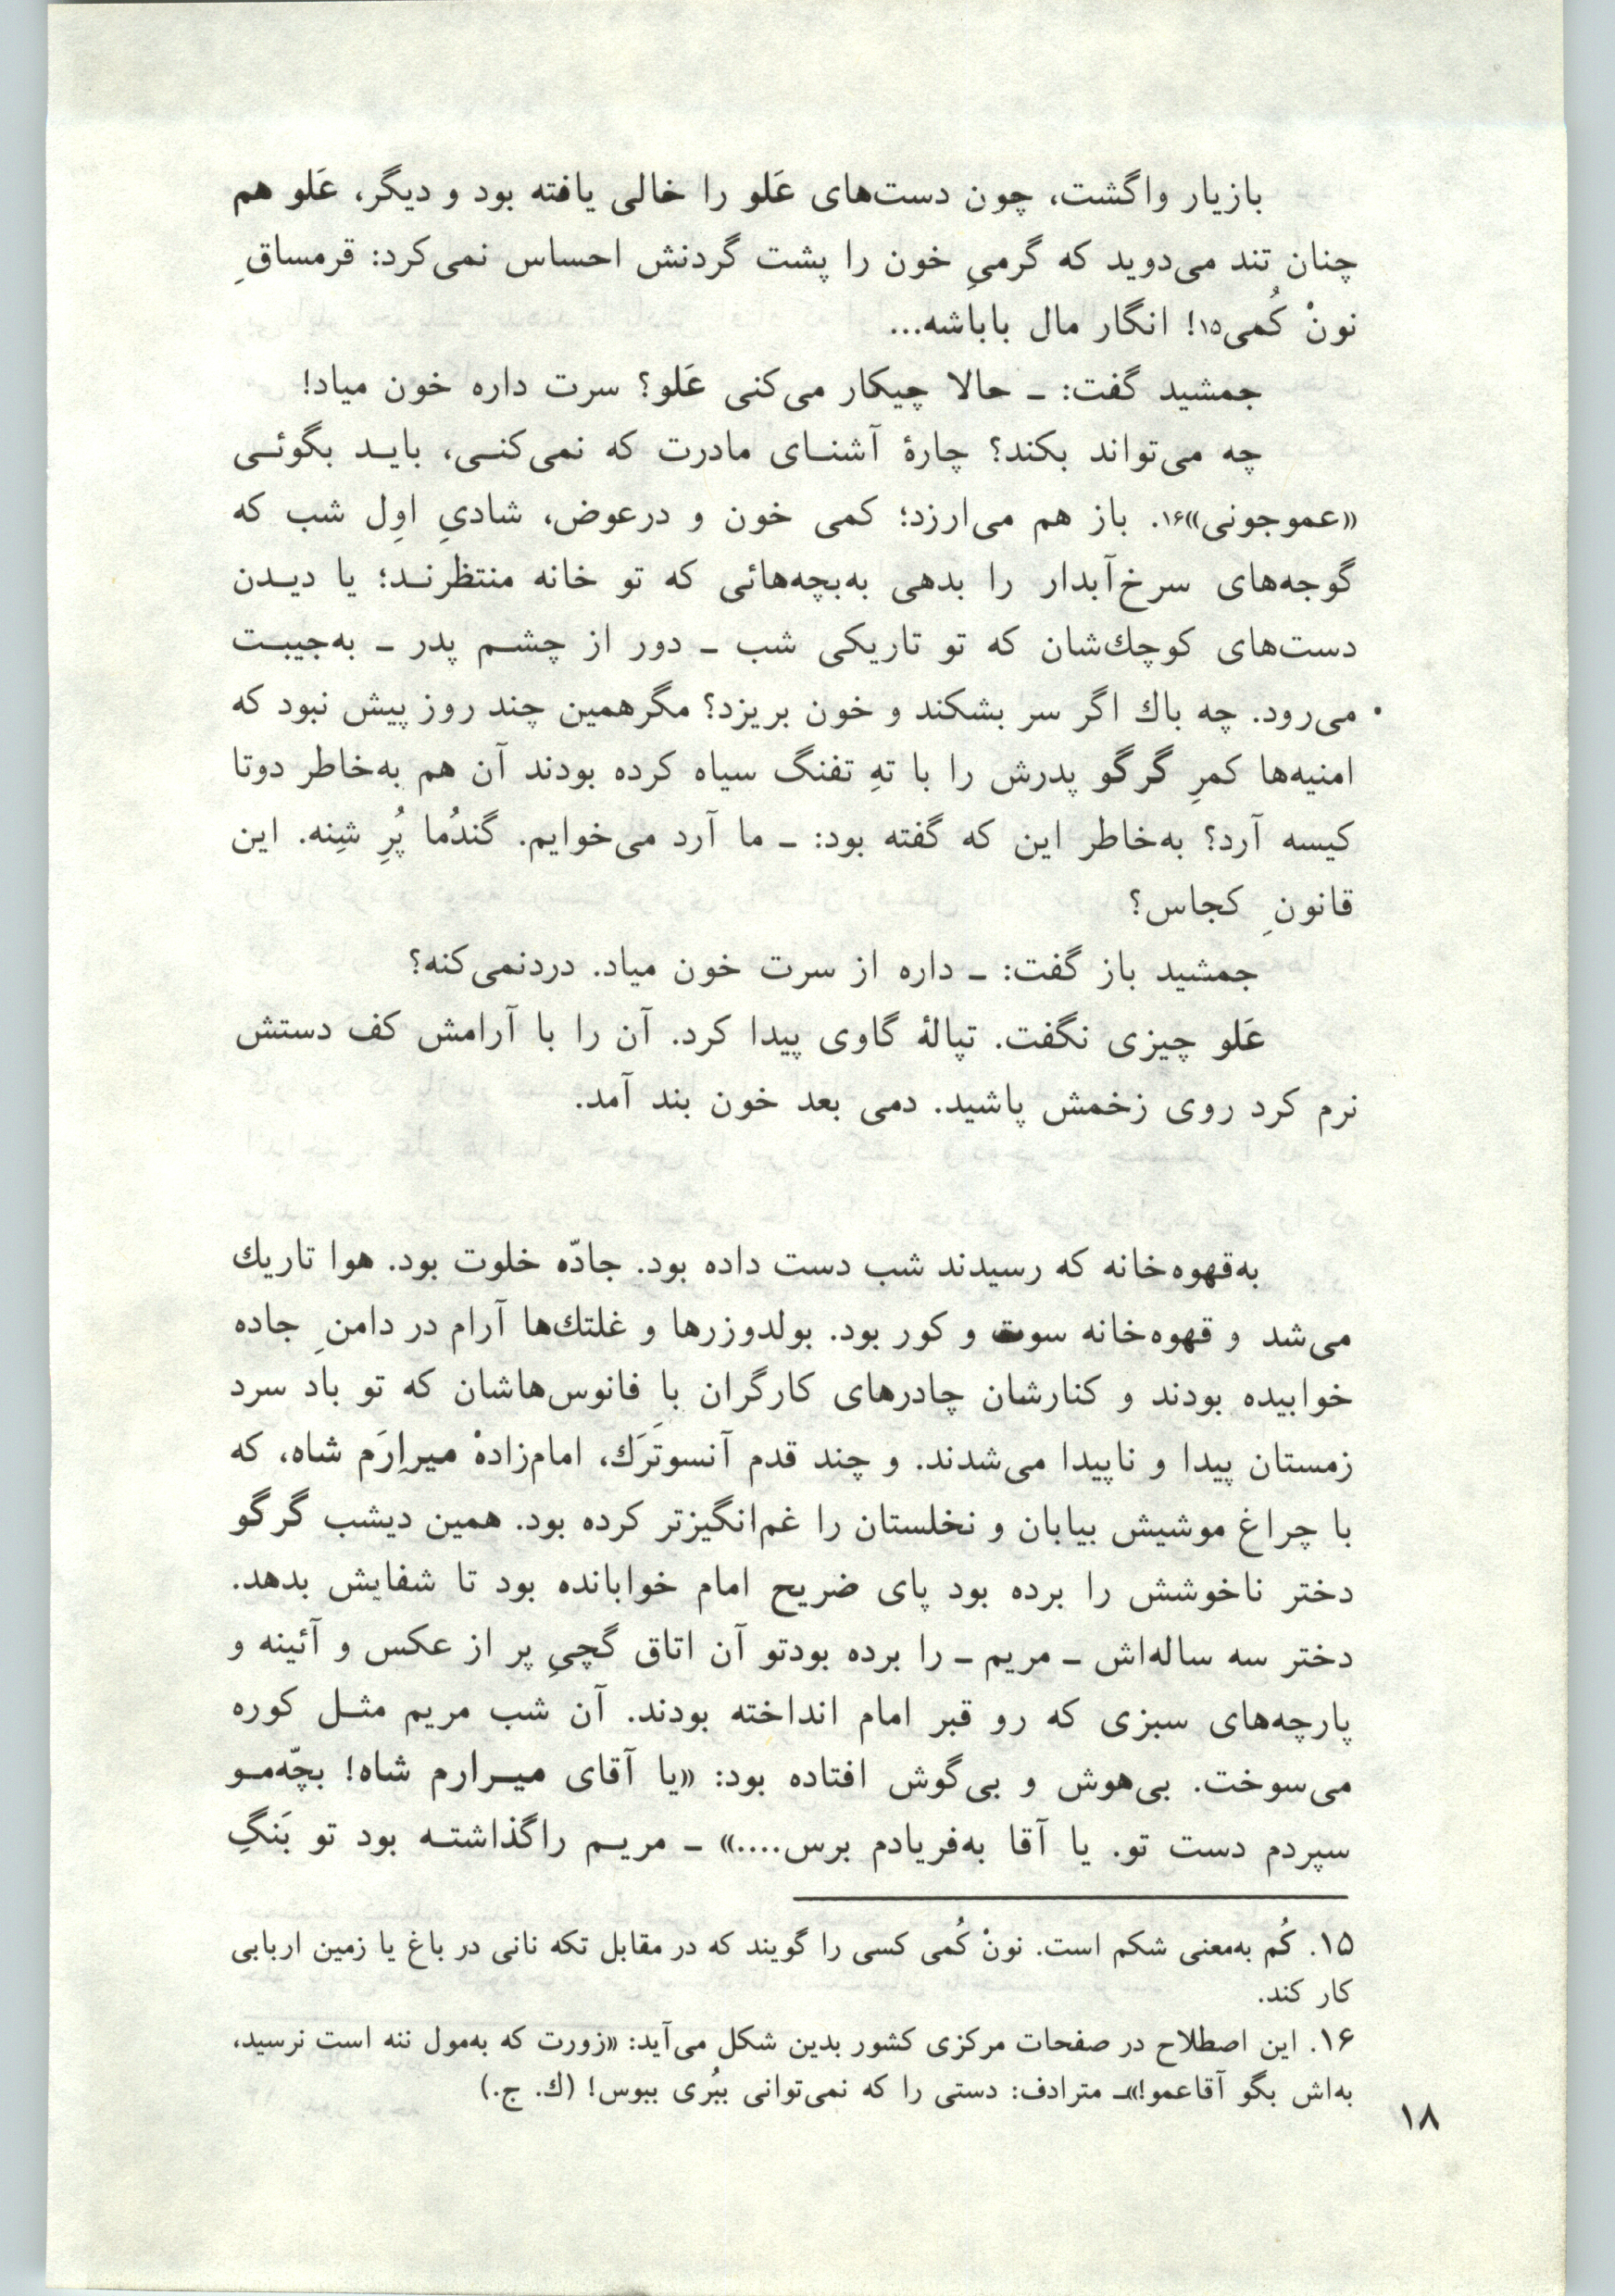 بازیار واگشت، چون دست‌های عَلو را خالی یافته بود و دیگر، عَلو هم
چنان تند می‌دوید که گرمیِ خون را پشت گردنش احساس نمی‌کرد: قرمساقِ
نونْ کُمی۱۵! انگار مال باباشه...
جمشید گفت: ـ حالا چیکار می‌کنی عَلو؟ سرت داره خون میاد!
چه می‌تواند بکند؟ چارهٔ آشنـای مادرت که نمی‌کنـی، بایـد بگوئـی
«عموجونی»۱۶. باز هم می‌ارزد؛ کمی خون و درعوض، شادیِ اوِل شب که
گوجه‌های سرخ‌آبدار را بدهی به‌بچه‌هائی که تو خانه منتظرنـد؛ یا دیـدن
دست‌های کوچك‌شان که تو تاریکی شب ـ دور از چشـم پدر ـ به‌جیبـت
می‌رود. چه باك اگر سر بشکند و خون بریزد؟ مگرهمین چند روز پیش نبود که
امنیه‌ها کمرِ گرگو پدرش را با تهِ تفنگ سیاه کرده بودند آن هم به‌خاطر دوتا
کیسه آرد؟ به‌خاطر این که گفته بود: ـ ما آرد می‌خوایم. گندُما پُرِ شِنه. این
قانونِ کجاس؟
جمشید باز گفت: ـ داره از سرت خون میاد. دردنمی‌کنه؟
عَلو چیزی نگفت. تپالهٔ گاوی پیدا کرد. آن را با آرامش کف دستش
نرم کرد روی زخمش پاشید. دمی بعد خون بند آمد.
به‌قهوه‌خانه که رسیدند شب دست داده بود. جادّه خلوت بود. هوا تاریك
می‌شد و قهوه‌خانه سوت و کور بود. بولدوزرها و غلتك‌ها آرام در دامنِ جاده
خوابیده بودند و کنارشان چادرهای کارگران با فانوس‌هاشان که تو باد سرد
زمستان پیدا و ناپیدا می‌شدند. و چند قدم آنسوتَرَك، امام‌زادهْ میراِرَم شاه، که
با چراغ موشیش بیابان و نخلستان را غم‌انگیزتر کرده بود. همین دیشب گرگو
دختر ناخوشش را برده بود پای ضریح امام خوابانده بود تا شفایش بدهد.
دختر سه ساله‌اش ـ مریم ـ را برده بودتو آن اتاق گچیِ پر از عکس و آئینه و
پارچه‌های سبزی که رو قبر امام انداخته بودند. آن شب مریم مثـل کوره
می‌سوخت. بی‌هوش و بی‌گوش افتاده بود: «یا آقای میـرارم شاه! بچّه‌مـو
سپردم دست تو. یا آقا به‌فریادم برس....» ـ مریـم راگذاشتـه بود تو بَنگِ
۱۵. کُم به‌معنی شکم است. نونْ کُمی کسی را گویند که در مقابل تکه نانی در باغ یا زمین اربابی
کار کند.
۱۶. این اصطلاح در صفحات مرکزی کشور بدین شکل می‌آید: «زورت که به‌مول ننه است نرسید،
به‌اش بگو آقاعمو!»ـ مترادف: دستی را که نمی‌توانی ببُری ببوس! (ك. ج.)
۱۸